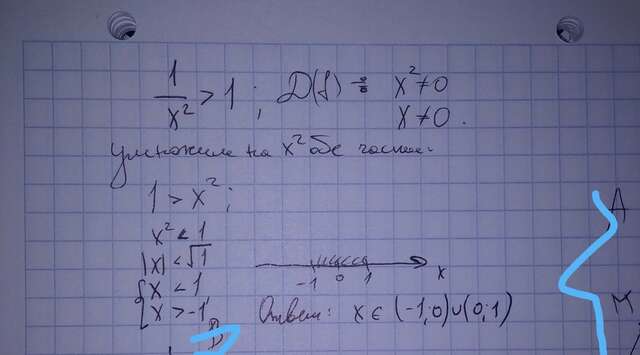 1/x² > 1 ; D(f) : x² ≠ 0
x ≠ 0.
умножим на x² обе части.
1 > x² ;
x² < 1
|x| < √1
{ x < 1
{ x > -1
-1 0 1 x
Ответ: x ∈ (-1; 0) ∪ (0; 1)